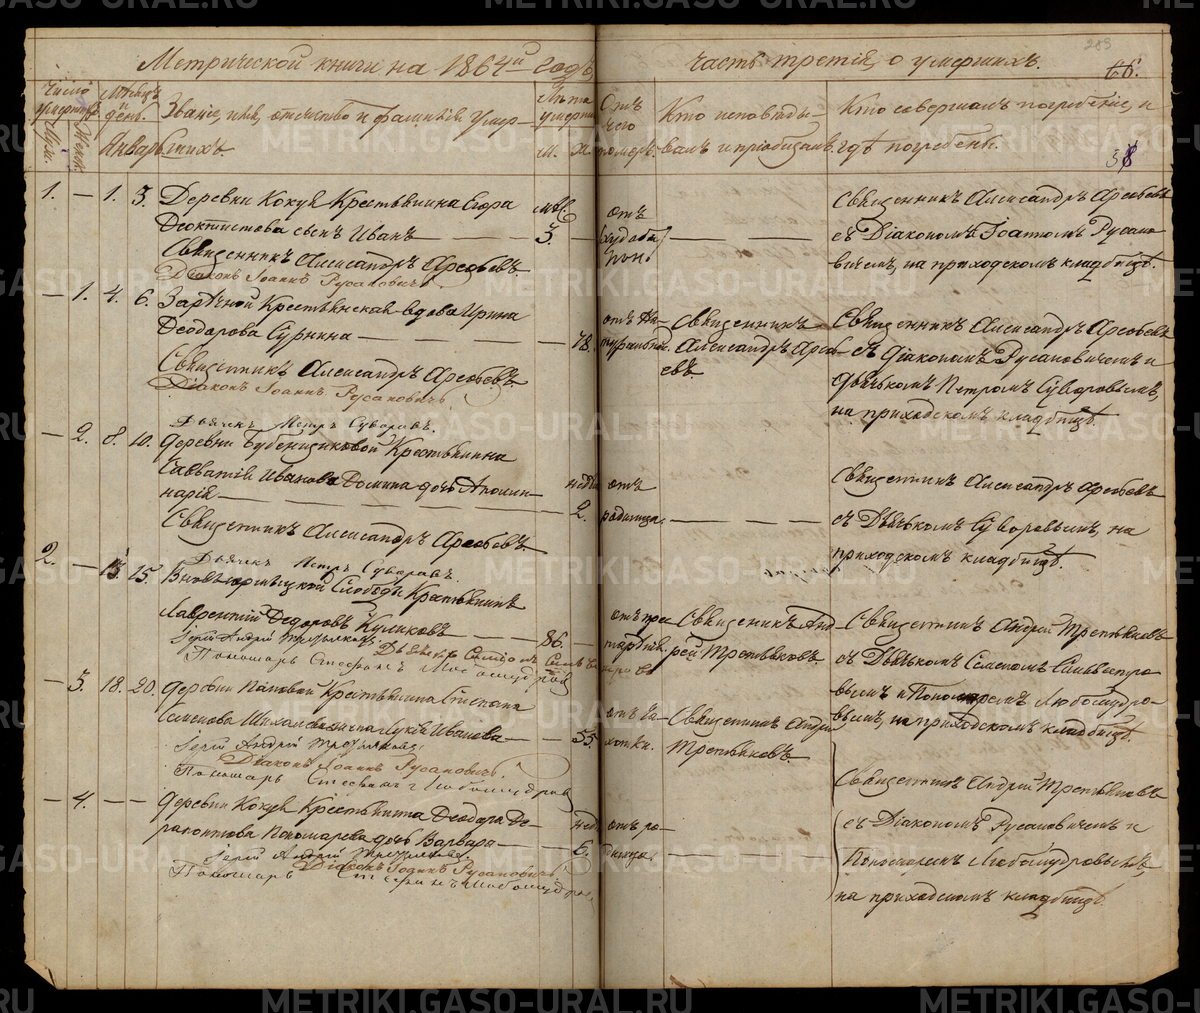 Метрической книги на 1864й годъ
часть третія, о умершихъ.
66.
Число умершихъ
Муж.
Женск.
Мѣсяцъ и день.
Январь
Званіе, имя, отчество и фамилія умер-
шихъ.
Лѣта умерш.
М. Ж.
Отъ чего померъ.
Кто исповѣды-
валъ и пріобщалъ.
Кто совершалъ погребеніе, и
гдѣ погребены.
1. — 1. 3. Деревни Кокуй Крестьянина Егора
Феоктистова сынъ Иванъ — 3.
Священникъ Александръ Арефьевъ
Діаконъ Іоаннъ Русановичъ
отъ
Священникъ Александръ Арефьевъ
съ Діакономъ Іоанномъ Русано-
вичемъ, на приходскомъ кладбищѣ.
— 1. 4. 6. Зарѣчной Крестьянская вдова Ирина
Феодорова Суркина — 78.
Священникъ Александръ Арефьевъ
Діаконъ Іоаннъ Русановичъ
Дьячекъ Петръ Суворовъ.
отъ На-
туральной.
Священникъ
Александръ Арефь-
евъ.
Священникъ Александръ Арефьевъ
съ діакономъ Русановичемъ и
дьячькомъ Петромъ Суворовымъ,
на приходскомъ кладбищѣ.
— 2. 8. 10. Деревни Бубенщиковой Крестьянина
Савватія Иванова Домина дочь Аполин-
нарія — 2.
Священникъ Александръ Арефьевъ
Дьячекъ Петръ Суворовъ.
отъ
родимца.
Священникъ Александръ Арефьевъ
съ Дьячькомъ Суворовымъ, на
приходскомъ кладбищѣ.
2. — 13. 15. Слободы Крестьянинъ
Лаврентій Федоровъ Куликовъ — 86. —
Іерей Андрей Третьяковъ.
Пономарь Стефанъ Любомудровъ
Священникъ Анд-
рей Третьяковъ.
Священникъ Андрей Третьяковъ
съ Дьячькомъ Семеномъ Сильвестро-
вымъ и Пономаремъ Любомудро-
вымъ, на приходскомъ кладбищѣ.
— 3. 18. 20. Деревни Паповой Крестьянина Степана
Семенова жена Лукія Иванова — 55.
Іерей Андрей Третьяковъ.
Діаконъ Іоаннъ Русановичъ.
Пономарь Стефанъ Любомудровъ
отъ ча-
хотки.
Священникъ Андрей
Третьяковъ.
Священникъ Андрей Третьяковъ
съ Діакономъ Русановичемъ и
Пономаремъ Любомудровымъ,
на приходскомъ кладбищѣ.
— 4. — — Деревни Кокуй Крестьянина Феодора До-
Пономарева дочь Варвара — 6.
Іерей Андрей Третьяковъ
Діаконъ Іоаннъ Русановичъ
Пономарь Стефанъ Любомудровъ
отъ ро-
димца.
METRIKI.GASO-URAL.RU